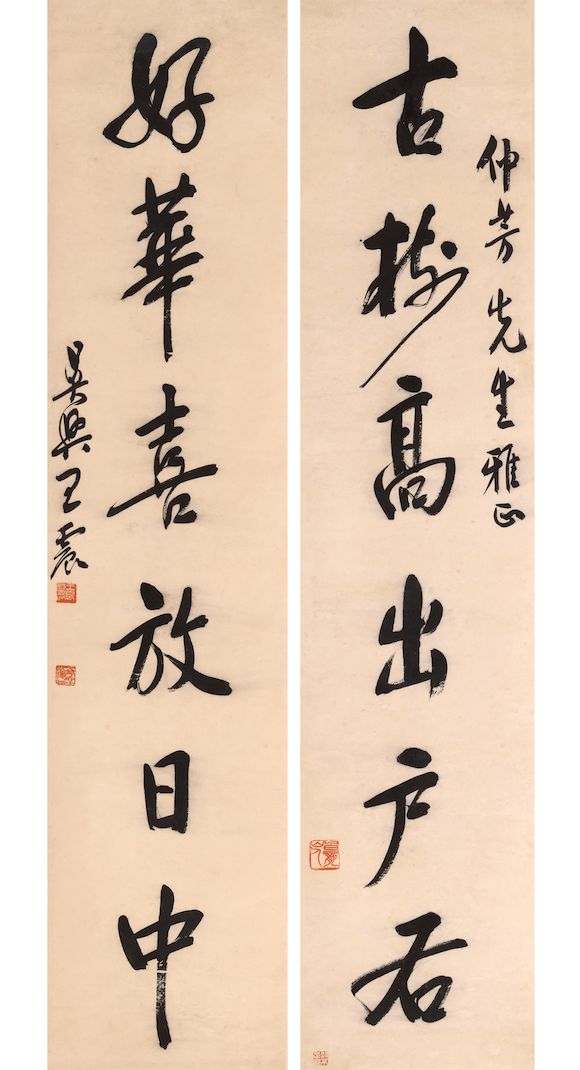 仲芳先生雅正
古樹高出户右
好華喜放日中
吳興王震